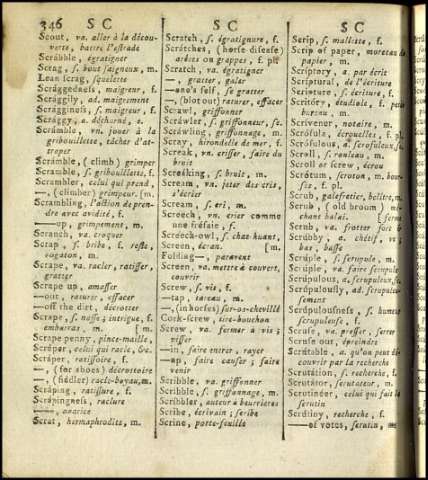 346 S C
S C
S C
Scout, va. aller à la décou-
verte, battre l'estrade
Scrabble, égratigner
Scrag, s. bout saigneux, m.
Lean scrag, squelette
Scraggedness, maigreur, f.
Scraggily, ad. maigrement
Scragginess, s. maigreur, f.
Scraggy, a. décharné, e.
Scramble, vn. jouer à la
gribouillette, tâcher d'at-
traper
Scramble, (climb) grimper
Scramble, s. gribouillette, f.
Scrambler, celui qui prend,
— (climber) grimpeur, [m.
Scrambling, l'action de pren-
dre avec avidité, f.
—up, grimpement, m.
Scranch, va. croquer
Scrap, s. bribe, f. reste,
rogaton, m.
Scrape, va. racler, ratisser,
gratter
Scrape up, amasser
—out, raturer, effacer
—off the dirt, décrotter
Scrape, s. nasse, intrigue, f.
embarras, m. [m.
Scrape penny, pince-maille,
Scraper, celui qui racle, &c.
Scraper, ratissoire, f.
—, (for shoes) décrotoire
—, (fiddler) racle-boyau, m.
Scraping, ratissure, f.
Scrapingness, raclure
—, avarice
Scrat, hermaphrodite, m.
Scratch, s. égratignure, f.
Scratches, (horse disease)
arêtes ou grappes, f. pl.
Scratch, va. égratigner
—, gratter, galer
—one's self, se gratter
—, (blot out) raturer, effacer
Scrawl, griffonner
Scrawler, s. griffonneur, se.
Scrawling, griffonnage, m.
Scray, hirondelle de mer, f.
Screak, vn. crisser, faire du
bruit
Screaking, s. bruit, m.
Scream, vn. jeter des cris,
s'écrier
Scream, s. cri, m.
Screech, vn. crier comme
une fresaie, f.
Screech-owl, s. chat-huant,
Screen, écran. [m.
Folding—, paravent
Screen, va. mettre à couvert,
couvrir
Screw, s. vis, f.
—tap, tareau, m.
—, (in horses) sur-os-chevillé
Cork-screw, tire-bouchon
Screw, va. fermer à vis;
visser
—in, faire entrer, rayer
—up, faire causer; faire
venir
Scribble, va. griffonner
Scribble, s. griffonnage, m.
Scribbler, auteur à beurrières
Scribe, écrivain; scribe
Scrine, porte-feuille
Scrip, s. mallette, f.
Scrip of paper, morceau de
papier, m.
Scriptory, a. par écrit
Scriptural, de l'écriture
Scripture, s. écriture, f.
Scritory, étudiole, f. petit
bureau, m.
Scrivener, notaire, m.
Scrofula, écrouelles, f. pl.
Scrofulous, a. scrofuleux, se.
Scroll, s. rouleau, m.
Scroll as screw, écrou
Scrotum, scroton, m. bour-
se, f. pl.
Scrub, galefretier, belître, m.
Scrub, (old broom) mé-
chant balai. [ferme
Scrub, va. frotter fort &
Scrubby, a. chétif, ve;
bas, basse
Scruple, s. scrupule, m.
Scruple, va. faire scrupule
Scrupulous, a. scrupuleux, se.
Scrupulously, ad. scrupuleu-
sement
Scrupulousness, s. humeur
scrupuleuse, f.
Scruse, va. presser, serrer
Scruse out, épreindre
Scrutable, a. qu'on peut dé-
couvrir par la recherche
Scrutation, s. recherche, f.
Scrutator, scrutateur, m.
Scrutineer, celui qui fait le
scrutin
Scrutiny, recherche, f.
—of votes, scrutin, m.